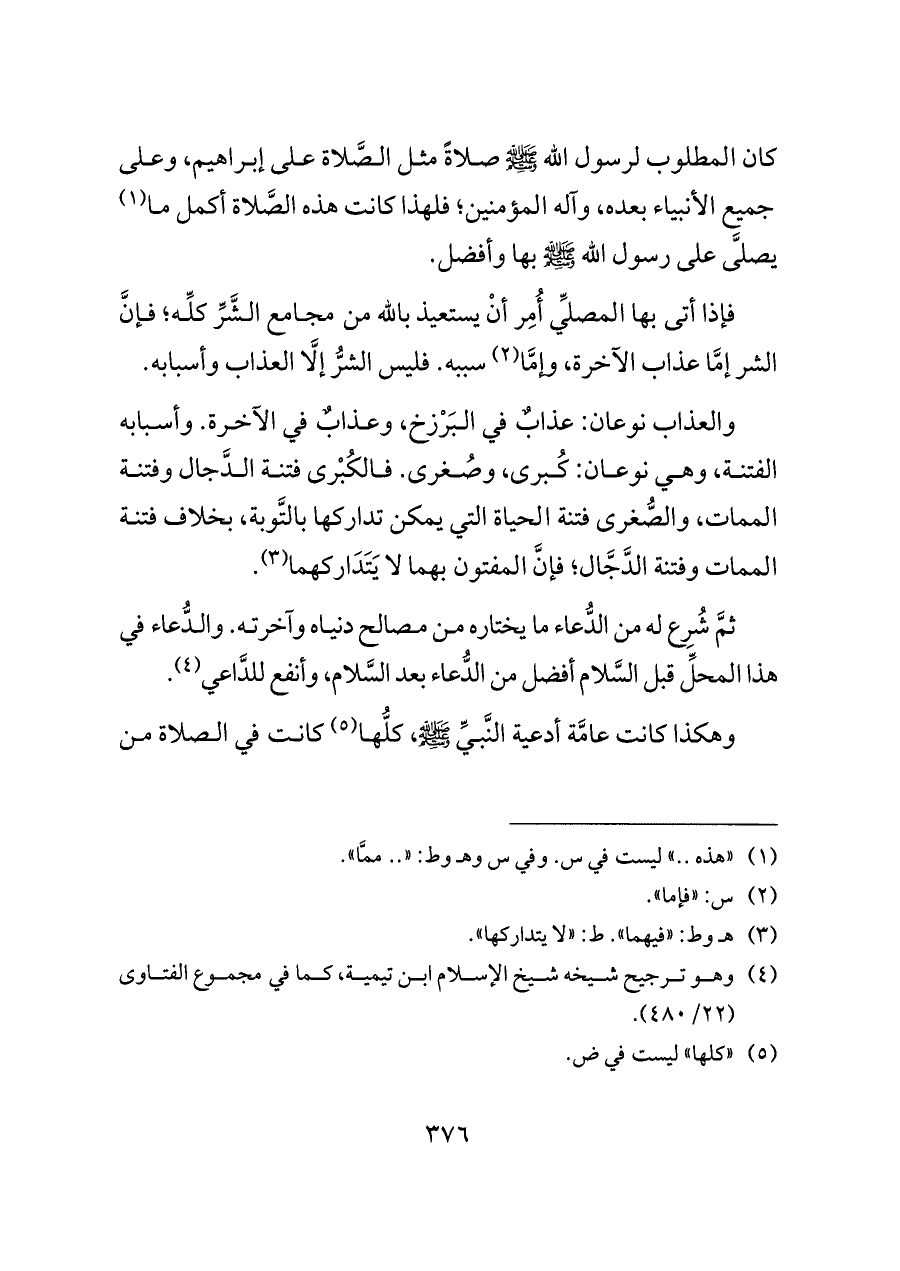 كان المطلوب لرسول الله ﷺ صلاةً مثل الصَّلاة على إبراهيم، وعلى
جميع الأنبياء بعده، وآله المؤمنين؛ فلهذا كانت هذه الصَّلاة أكمل ما(١)
يصلَّى على رسول الله ﷺ بها وأفضل.
فإذا أتى بها المصلِّي أُمِر أنْ يستعيذ بالله من مجامع الشَّرِّ كلِّه؛ فإنَّ
الشر إمَّا عذاب الآخرة، وإمَّا(٢) سببه. فليس الشرُّ إلَّا العذاب وأسبابه.
والعذاب نوعان: عذابٌ في البَرْزخ، وعذابٌ في الآخرة. وأسبابه
الفتنة، وهي نوعان: كُبرى، وصُغرى. فالكُبْرى فتنة الدَّجال وفتنة
الممات، والصُّغرى فتنة الحياة التي يمكن تداركها بالتَّوبة، بخلاف فتنة
الممات وفتنة الدَّجَّال؛ فإنَّ المفتون بهما لا يَتَدَاركهما(٣).
ثمَّ شُرِع له من الدُّعاء ما يختاره من مصالح دنياه وآخرته. والدُّعاء في
هذا المحلِّ قبل السَّلام أفضل من الدُّعاء بعد السَّلام، وأنفع للدَّاعي(٤).
وهكذا كانت عامَّة أدعية النَّبيِّ ﷺ، كلُّها(٥) كانت في الصلاة من
(١) «هذه ..» ليست في س. وفي س وهـ وط: «.. ممَّا».
(٢) س: «فإما».
(٣) هـ وط: «فيهما». ط: «لا يتداركها».
(٤) وهو ترجيح شيخه شيخ الإسلام ابن تيمية، كما في مجموع الفتاوى
(٢٢/ ٤٨٠).
(٥) «كلها» ليست في ض.
٣٧٦